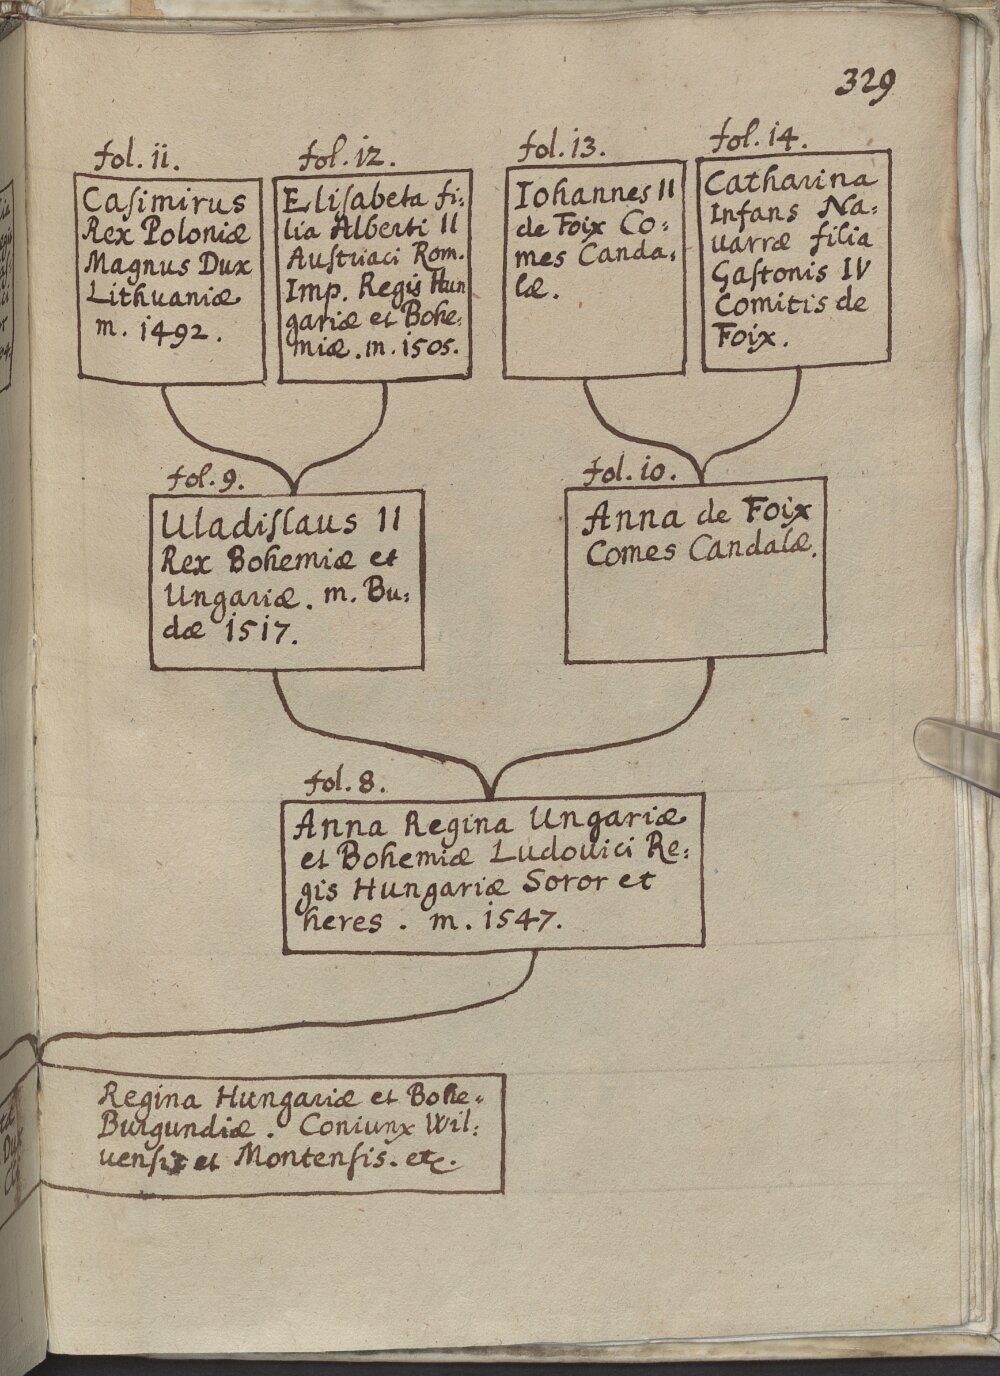 329
fol. 11.
Casimirus
Rex Poloniæ
Magnus Dux
Lithuaniæ
m. 1492.
fol. 12.
Elisabeta fi:
lia Alberti II
Austriaci Rom.
Imp. Regis Hun
gariæ et Bohe:
miæ. m. 1505.
fol. 13.
Iohannes II
de Foix Co:
mes Canda:
læ.
fol. 14.
Catharina
Infans Na:
uarræ filia
Gastonis IV
Comitis de
Foix.
fol. 9.
Uladislaus II
Rex Bohemiæ et
Ungariæ. m. Bu:
dæ 1517.
fol. 10.
Anna de Foix
Comes Candalæ.
fol. 8.
Anna Regina Ungariæ
et Bohemiæ Ludouici Re:
gis Hungariæ Soror et
heres. m. 1547.
Regina Hungariæ et Bohe:
Burgundiæ. Coniunx Wil:
uensis et Montensis. etc.